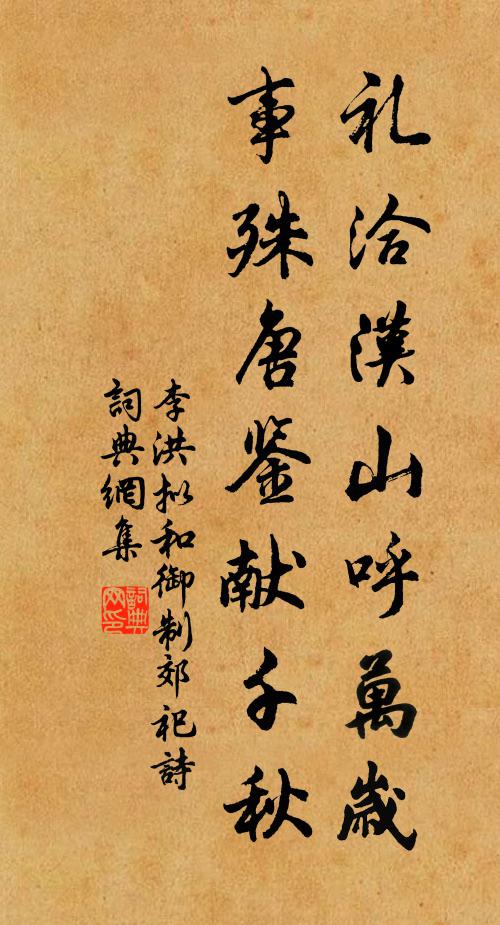 礼洽漢山呼萬歲
事殊唐鉴献千秋
李洪拟和御制郊祀詩
詞典網集
詞典网印